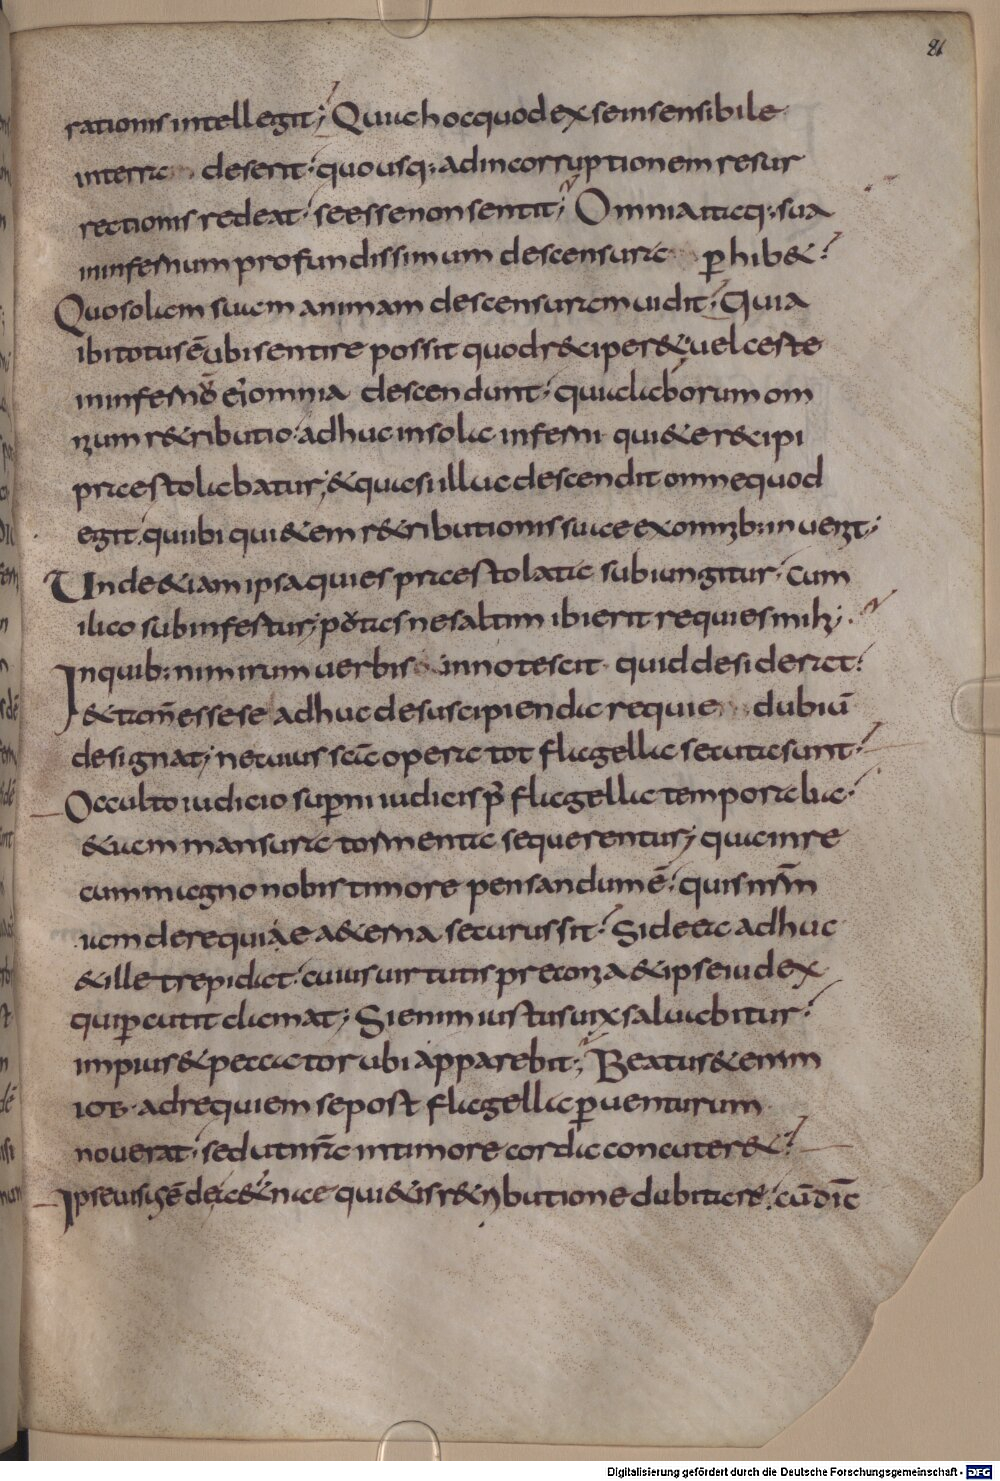 21
rationis intellegit; Quia hoc quod ex se insensibile
in terra deserit· quousq; ad incorruptionem resur
rectionis redeat· se esse non sentit; Omnia itaq; sua
in infernum profundissimum descensura p̲hib&?
Quo solam suam animam descensuram uidit· Quia
ibi totus ē ubi sentire possit quod r&iper&· uel certe
in infernū ei omnia descendunt· quia laborum om
nium r&ributio· adhuc in sola inferni qui&e r&ipi
praestolabatur; & quasi illuc descendit omne quod
egit, qui ibi qui&em r&ributionis suae ex omnib; inuenit;
Unde &iam ipsa quies praestolata subiungitur· Cum
ilico subinfertur; putas ne saltim ibi erit requies mihi;
Inquib; nimirum uerbis innotescit quid desiderat?
&tam̄ esse se adhuc de suscipienda requie dubiū
designat; ne cuius sc̄a opera tot flagella secuta sunt?
Occulto iudicio sup̲ni iudicis p̄ flagella temporalia·
&iam mansura tormenta sequerentur; qua in re
cum magno nobis timore pensandum ē· quis nr̄m
iam de requiae a&erna securus sit? Si de ea adhuc
& ille trepidat· cuius uirtutis preconia & ipse iudex
qui p̲cutit clamat; Si enim iustus uix saluabitur?
impius & peccator ubi apparebit; Beatus &enim
iob· ad requiem se post flagella p̲uenturum
nouerat· sed ut nr̄a in timore corda concuter&?
Ipse uisus ē de a&ernae qui&is r&ributione dubitare· cū dic̄
Digitalisierung gefördert durch die Deutsche Forschungsgemeinschaft - DFG